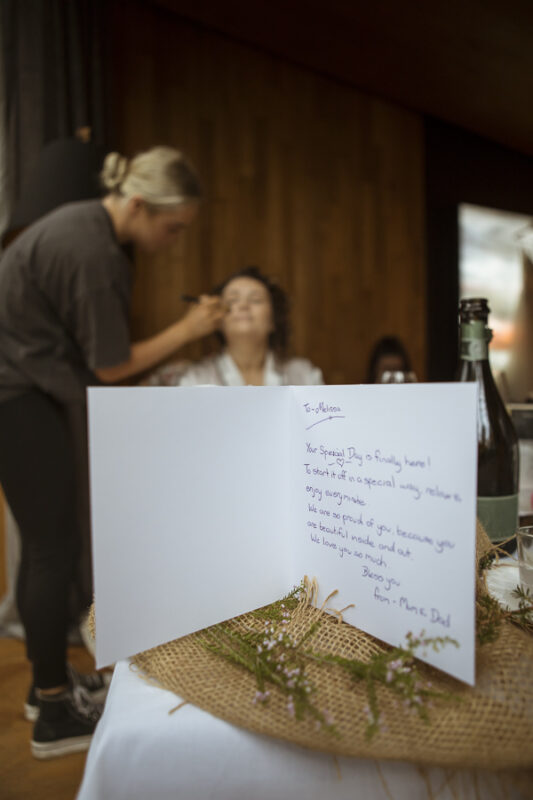 To - Melissa
Your Special Day is finally here!
To start it off in a special way, relax &
enjoy every minute.
We are so proud of you, because you
are beautiful inside and out.
We love you so much.
Bless you
from - Mum & Dad